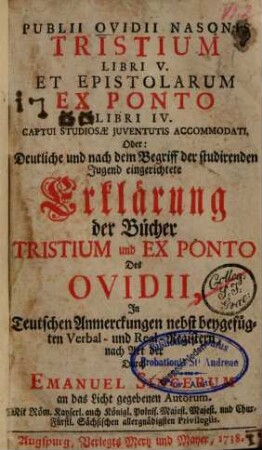 PUBLII OVIDII NASONIS
TRISTIUM
LIBRI V.
ET EPISTOLARUM
EX PONTO
LIBRI IV.
CAPTUI STUDIOSÆ JUVENTUTIS ACCOMMODATI,
Oder:
Deutliche und nach dem Begriff der studirenden
Jugend eingerichtete
Erklärung
der Bücher
TRISTIUM und EX PONTO
Des
OVIDII,
In
Teutschen Anmerckungen nebst beygefüg-
ten Verbal- und Real-Registern
nach Art der
EMANUEL
an das Licht gegebenen Autorum.
Mit Röm. Kayserl. auch Königl. Polnis. Majest. Majest. und Chur-
Fürstl. Sächsischen allergnädigsten Privilegiis.
Augspurg, Verlegts Mertz und Mayer, 1738.